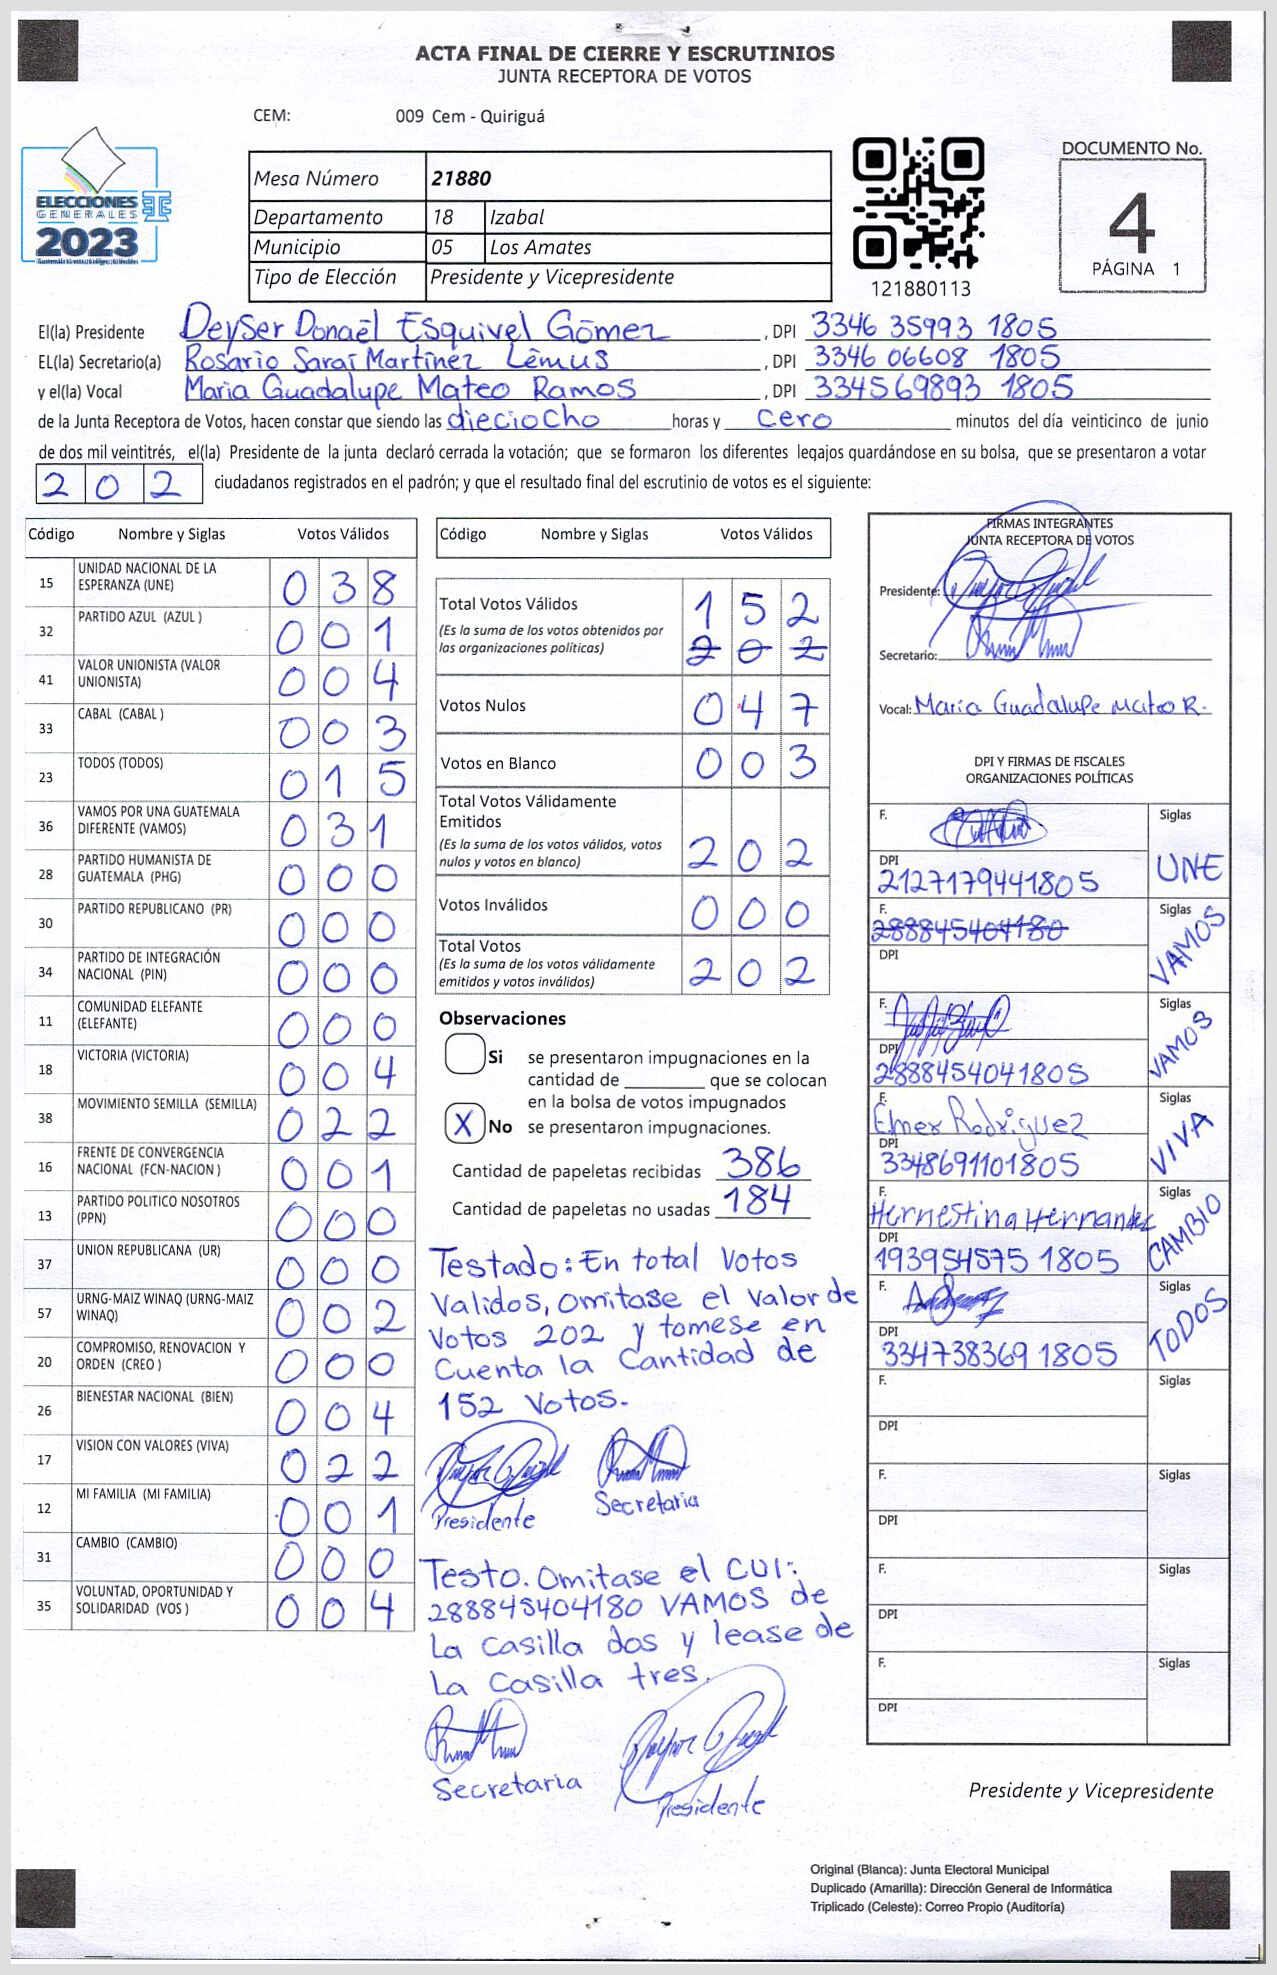 ACTA FINAL DE CIERRE Y ESCRUTINIOS
JUNTA RECEPTORA DE VOTOS
CEM: 009 Cem - Quiriguá
ELECCIONES
GENERALES
2023
Mesa Número 21880
Departamento 18 Izabal
Municipio 05 Los Amates
Tipo de Elección Presidente y Vicepresidente
121880113
DOCUMENTO No.
4
PÁGINA 1
El(la) Presidente Deyser Donaël Esquivel Gómez, DPI 3346 35993 1805
EL(la) Secretario(a) Rosario Saraí Martínez Lémus, DPI 3346 06608 1805
y el(la) Vocal Maria Guadalupe Mateo Ramos, DPI 334569893 1805
de la Junta Receptora de Votos, hacen constar que siendo las dieciocho horas y cero minutos del día veinticinco de junio
de dos mil veintitrés, el(la) Presidente de la junta declaró cerrada la votación; que se formaron los diferentes legajos guardándose en su bolsa, que se presentaron a votar
202 ciudadanos registrados en el padrón; y que el resultado final del escrutinio de votos es el siguiente:
Código Nombre y Siglas Votos Válidos
15 UNIDAD NACIONAL DE LA ESPERANZA (UNE) 038
32 PARTIDO AZUL (AZUL ) 001
41 VALOR UNIONISTA (VALOR UNIONISTA) 004
33 CABAL (CABAL ) 003
23 TODOS (TODOS) 015
36 VAMOS POR UNA GUATEMALA DIFERENTE (VAMOS) 031
28 PARTIDO HUMANISTA DE GUATEMALA (PHG) 000
30 PARTIDO REPUBLICANO (PR) 000
34 PARTIDO DE INTEGRACIÓN NACIONAL (PIN) 000
11 COMUNIDAD ELEFANTE (ELEFANTE) 000
18 VICTORIA (VICTORIA) 004
38 MOVIMIENTO SEMILLA (SEMILLA) 022
16 FRENTE DE CONVERGENCIA NACIONAL (FCN-NACION ) 001
13 PARTIDO POLITICO NOSOTROS (PPN) 000
37 UNION REPUBLICANA (UR) 000
57 URNG-MAIZ WINAQ (URNG-MAIZ WINAQ) 002
20 COMPROMISO, RENOVACION Y ORDEN (CREO ) 000
26 BIENESTAR NACIONAL (BIEN) 004
17 VISION CON VALORES (VIVA) 022
12 MI FAMILIA (MI FAMILIA) 001
31 CAMBIO (CAMBIO) 000
35 VOLUNTAD, OPORTUNIDAD Y SOLIDARIDAD (VOS ) 004
Código Nombre y Siglas Votos Válidos
Total Votos Válidos 152
(Es la suma de los votos obtenidos por
las organizaciones políticas) 202
Votos Nulos 047
Votos en Blanco 003
Total Votos Válidamente
Emitidos
(Es la suma de los votos válidos, votos
nulos y votos en blanco) 202
Votos Inválidos 000
Total Votos
(Es la suma de los votos válidamente
emitidos y votos inválidos) 202
Observaciones
Si se presentaron impugnaciones en la
cantidad de ________ que se colocan
en la bolsa de votos impugnados
X No se presentaron impugnaciones.
Cantidad de papeletas recibidas 386
Cantidad de papeletas no usadas 184
Testado: En total Votos
Validos, omitase el valor de
Votos 202 y tomese en
Cuenta la Cantidad de
152 Votos.
Presidente Secretaria
Testo. Omitase el CUI:
288845404180 VAMOS de
La Casilla dos y lease de
La Casilla tres.
Secretaria Presidente
FIRMAS INTEGRANTES
JUNTA RECEPTORA DE VOTOS
Presidente:
Secretario:
Vocal: Maria Guadalupe Mateo R.
DPI Y FIRMAS DE FISCALES
ORGANIZACIONES POLÍTICAS
F. Siglas
DPI
2127179441805 UNE
F. Siglas
288845404180 VAMOS
DPI
F. Siglas
DPI
2888454041805 VAMOS
F. Siglas
Elmer Rodriguez
DPI
3348691101805 VIVA
F. Siglas
Hernestina Hernandez
DPI
193954575 1805 CAMBIO
F. Siglas
DPI
334738369 1805 TODOS
F. Siglas
DPI
F. Siglas
DPI
F. Siglas
DPI
F. Siglas
DPI
Presidente y Vicepresidente
Original (Blanca): Junta Electoral Municipal
Duplicado (Amarilla): Dirección General de Informática
Triplicado (Celeste): Correo Propio (Auditoría)